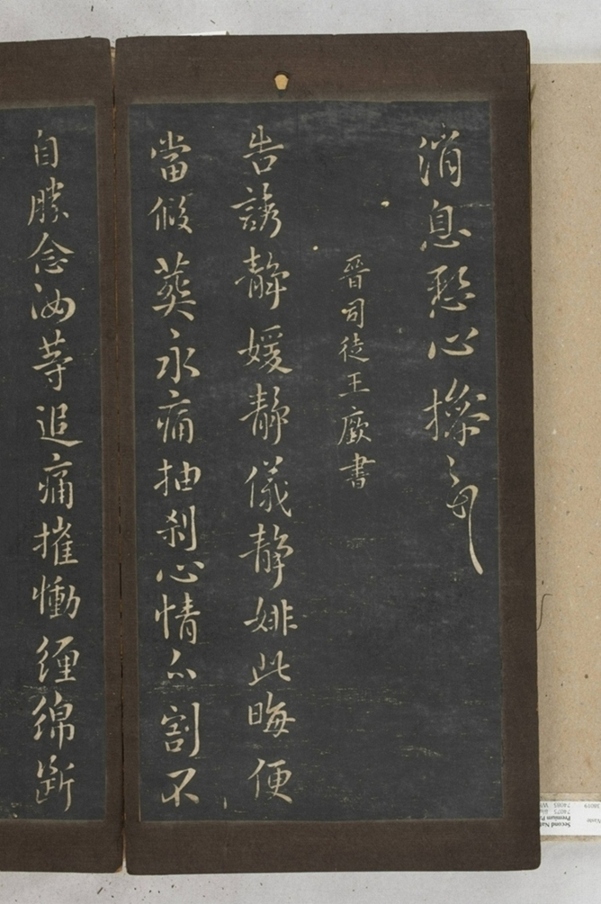 消息愁心操耳
晉司徒王廞書
告誘靜媛靜儀靜姚此晦便
當假葬永痛抽剝心情分割不
自勝念汝等追痛摧慟纏綿斷